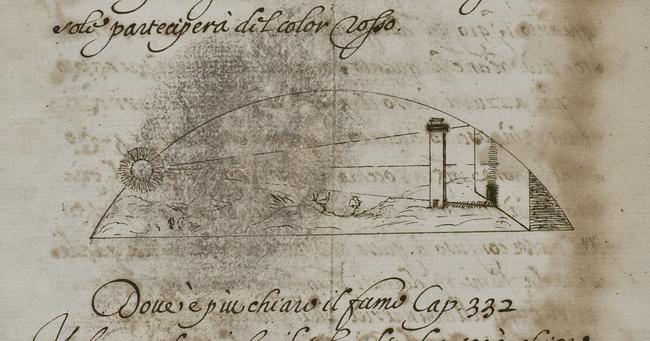 sole parteciperà del color Rosso.
Doue è piu chiaro il fumo Cap. 332